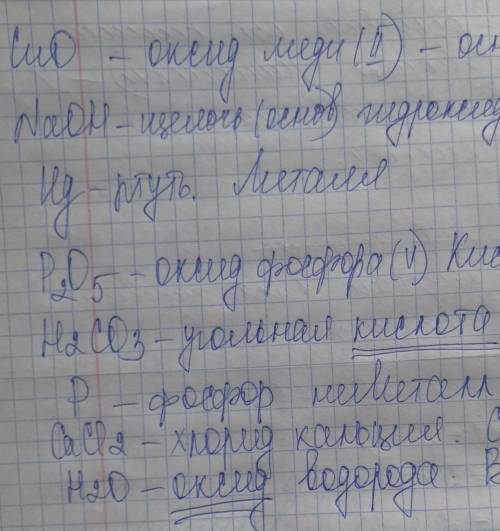 CuO – оксид меди (II) – осн
NaOH – щелочь (основ) гидроксид
Hg – ртуть. Металл
P2O5 – оксид фосфора (V) Кис
H2CO3 – угольная кислота
P – фосфор неметалл
CaCl2 – хлорид кальция. С
H2O – оксид водорода. В